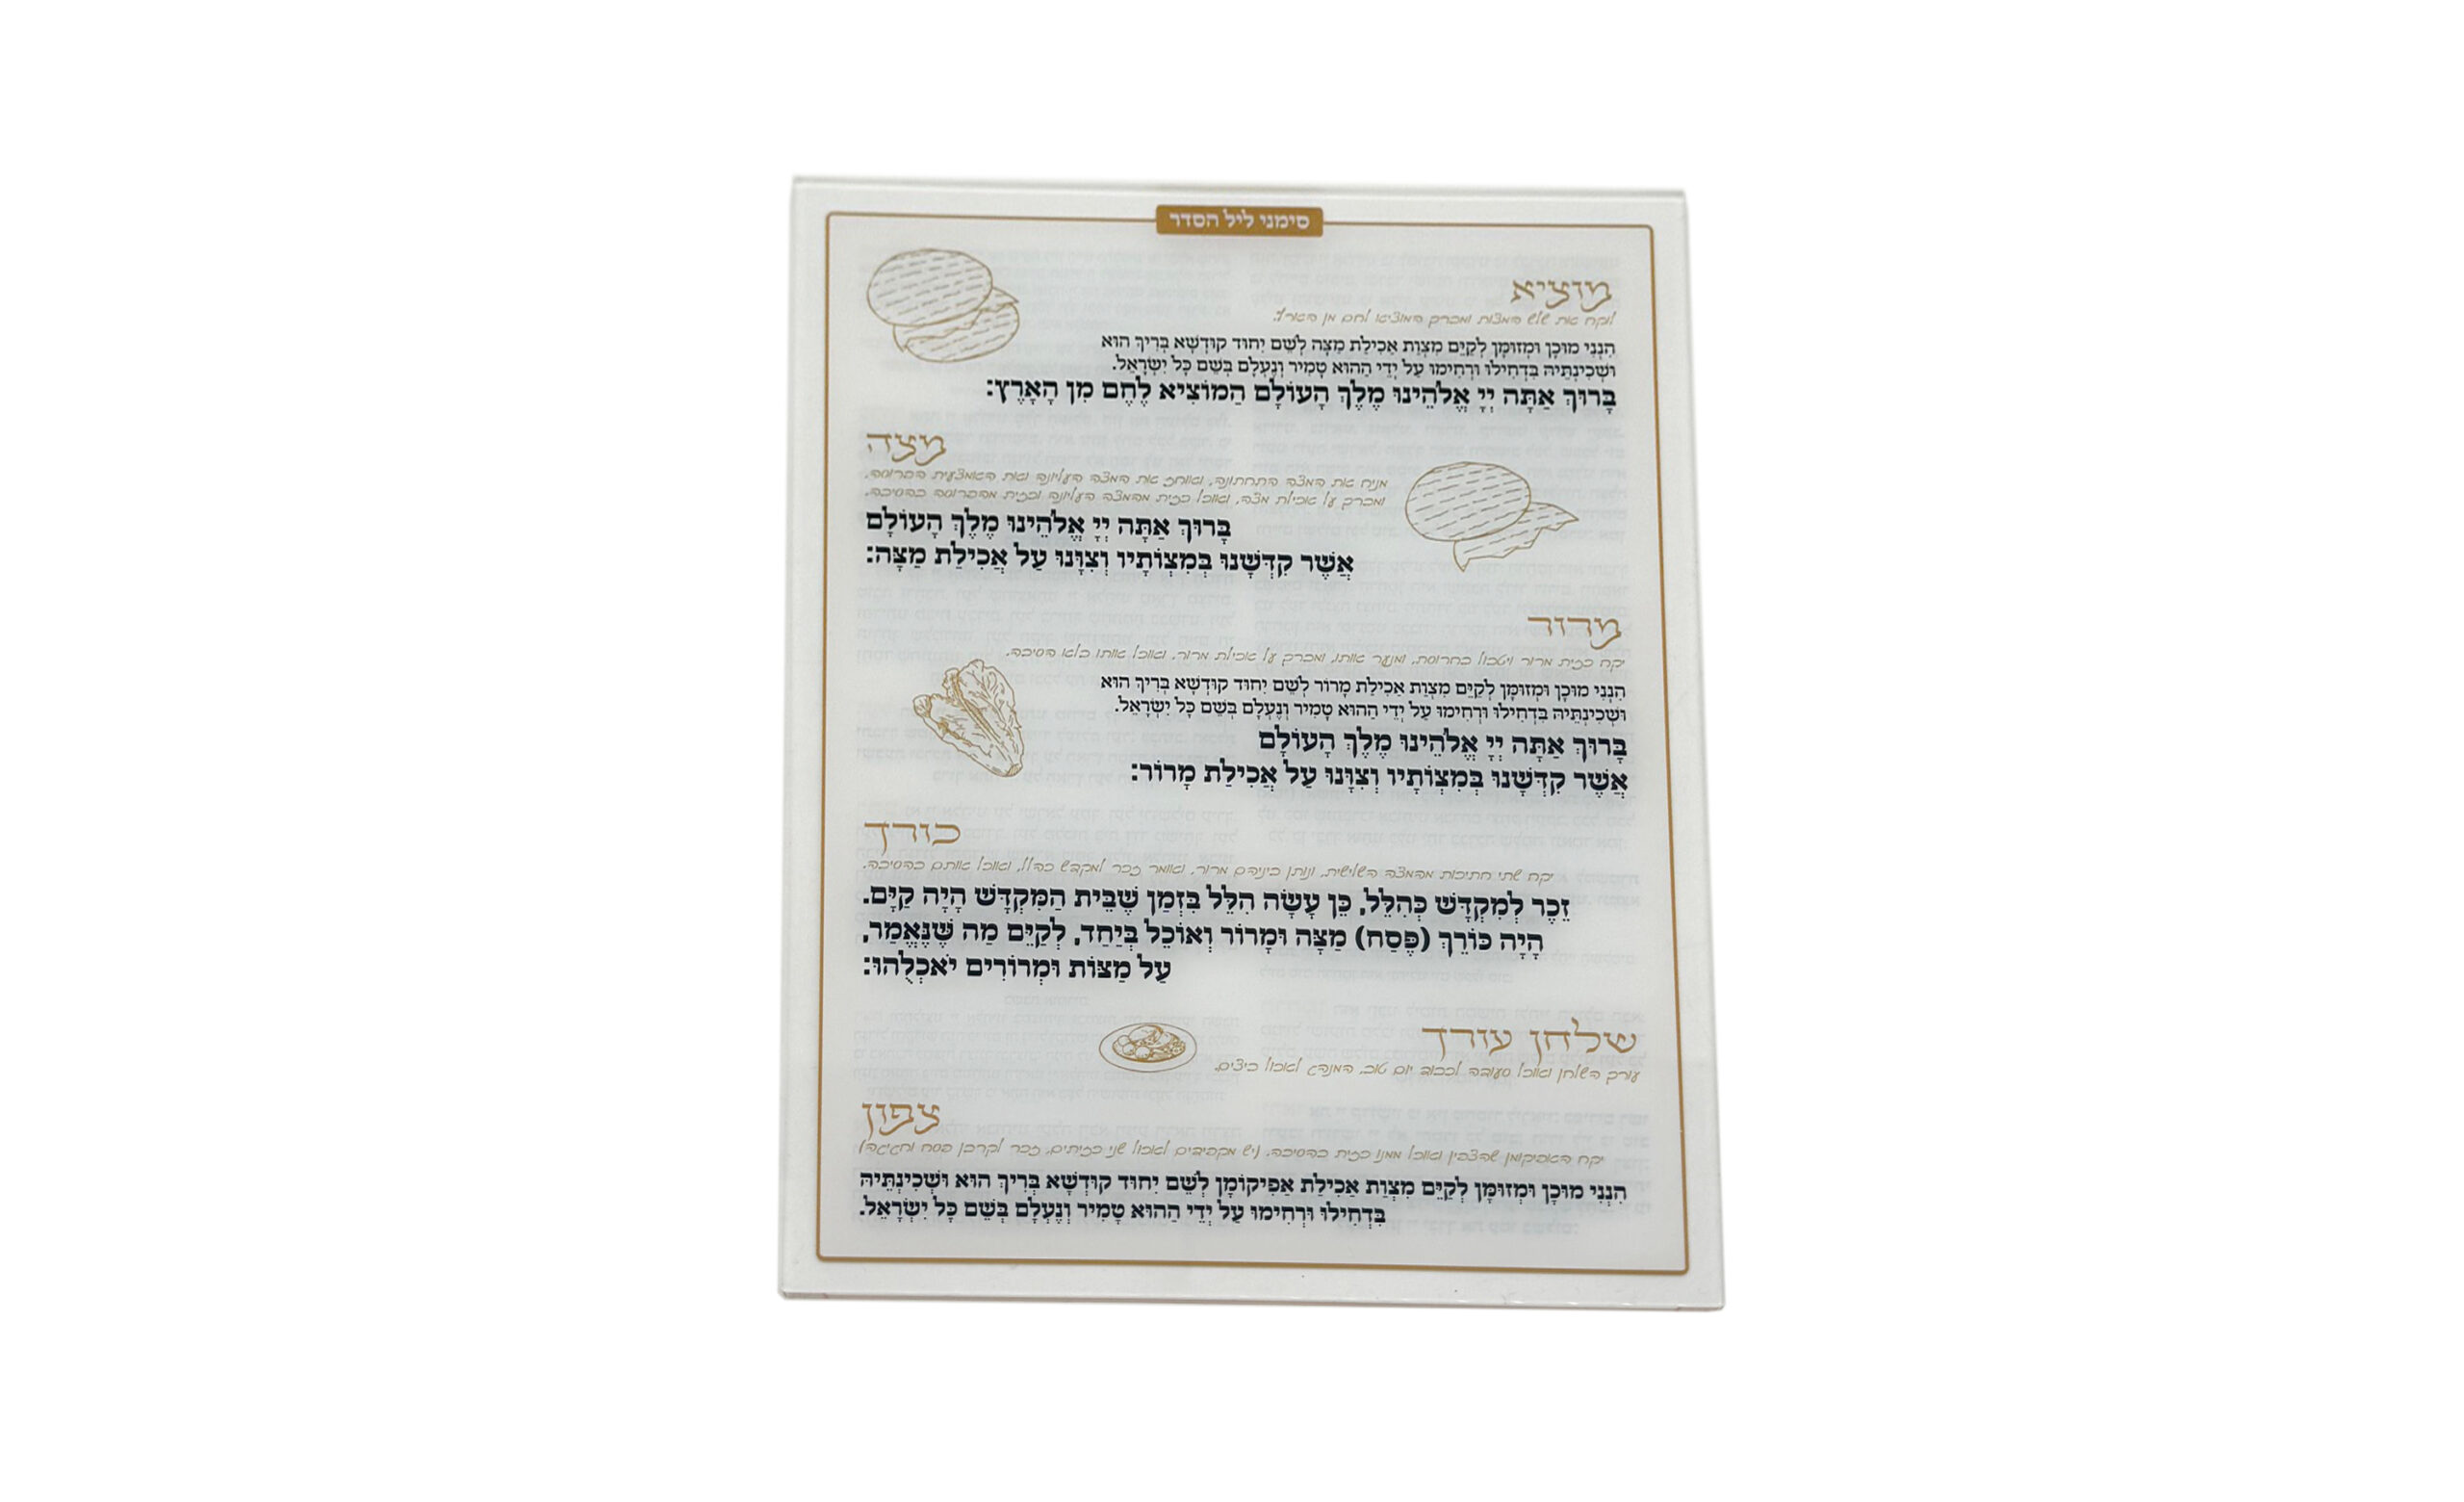 סימני ליל הסדר
מוציא
לוקח את שלש המצות ומברך המוציא לחם מן הארץ:
הִנְנִי מוּכָן וּמְזוּמָּן לְקַיֵּם מִצְוַת אַכִילַת מַצָּה לְשֵׁם יִחוּד קוּדְשָׁא בְּרִיךְ הוּא
וּשְׁכִינְתֵּיהּ בִּדְחִילוּ וּרְחִימוּ עַל יְדֵי הַהוּא טָמִיר וְנֶעְלָם בְּשֵׁם כָּל יִשְׂרָאֵל.
בָּרוּךְ אַתָּה יְיָ אֱלֹהֵינוּ מֶלֶךְ הָעוֹלָם הַמוֹצִיא לֶחֶם מִן הָאָרֶץ:
מצה
מניח את המצה התחתונה, ואוחז את המצה העליונה ואת האמצעית הפרוסה,
ומברך על אכילת מצה, ואוכל כזית מהמצה העליונה וכזית מהפרוסה בהסיבה.
בָּרוּךְ אַתָּה יְיָ אֱלֹהֵינוּ מֶלֶךְ הָעוֹלָם
אֲשֶׁר קִדְּשָׁנוּ בְּמִצְוֹתָיו וְצִוָּנוּ עַל אֲכִילַת מַצָּה:
מרור
יקח כזית מרור ויטבול בחרוסת, ומנער אותו, ומברך על אכילת מרור. ואוכל אותו בלא הסיבה.
הִנְנִי מוּכָן וּמְזוּמָּן לְקַיֵּם מִצְוַת אַכִילַת מָרוֹר לְשֵׁם יִחוּד קוּדְשָׁא בְּרִיךְ הוּא
וּשְׁכִינְתֵּיהּ בִּדְחִילוּ וּרְחִימוּ עַל יְדֵי הַהוּא טָמִיר וְנֶעְלָם בְּשֵׁם כָּל יִשְׂרָאֵל.
בָּרוּךְ אַתָּה יְיָ אֱלֹהֵינוּ מֶלֶךְ הָעוֹלָם
אֲשֶׁר קִדְּשָׁנוּ בְּמִצְוֹתָיו וְצִוָּנוּ עַל אֲכִילַת מָרוֹר:
כורך
יקח שתי חתיכות מהמצה השלישית, ונותן ביניהם מרור, ואומר זכר למקדש כהלל, ואוכל אותם בהסיבה.
זֵכֶר לְמִקְדָּשׁ כְּהִלֵּל, כֵּן עָשָׂה הִלֵּל בִּזְמַן שֶׁבֵּית הַמִּקְדָּשׁ הָיָה קַיָּם.
הָיָה כּוֹרֵךְ (פֶּסַח) מַצָּה וּמָרוֹר וְאוֹכֵל בְּיַחַד, לְקַיֵּם מַה שֶּׁנֶּאֱמַר,
עַל מַצּוֹת וּמְרוֹרִים יֹאכְלֻהוּ:
שלחן עורך
עורך השלחן ואוכל סעודה לכבוד יום טוב. המנהג לאכול ביצים.
צפון
יקח האפיקומן שהצפין ואוכל ממנו כזית בהסיבה. (יש מקפידים לאכול שני כזיתים, זכר לקרבן פסח וחגיגה)
הִנְנִי מוּכָן וּמְזוּמָּן לְקַיֵּם מִצְוַת אַכִילַת אֲפִיקוֹמָן לְשֵׁם יִחוּד קוּדְשָׁא בְּרִיךְ הוּא וּשְׁכִינְתֵּיהּ
בִּדְחִילוּ וּרְחִימוּ עַל יְדֵי הַהוּא טָמִיר וְנֶעְלָם בְּשֵׁם כָּל יִשְׂרָאֵל.